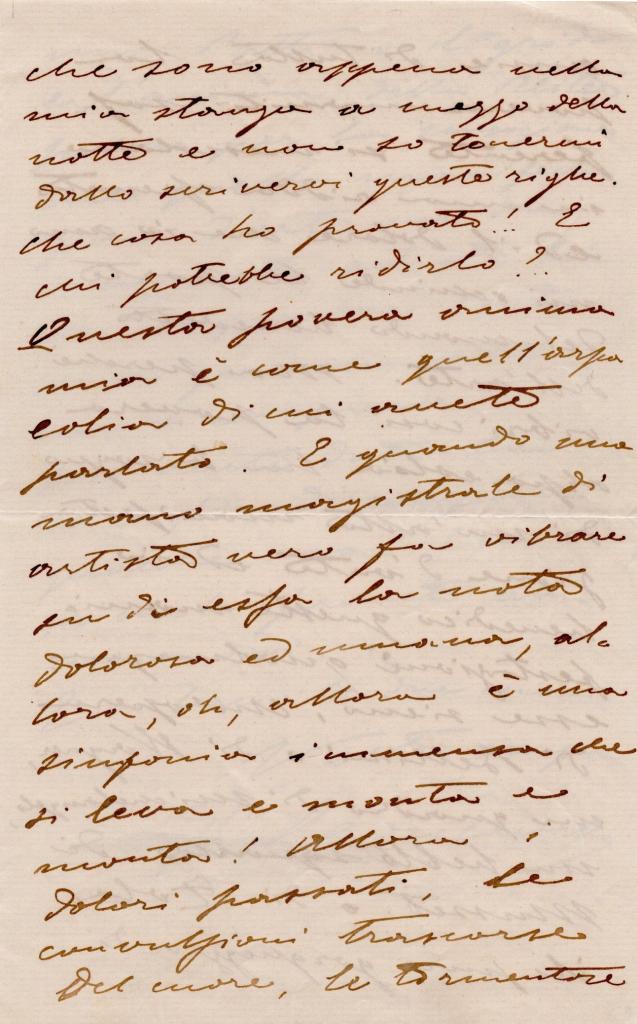 che sono appena nella
mia stanza a mezzo della
notte e non so tenermi
dallo scrivervi queste righe.
Che cosa ho provato!! E
chi potrebbe ridirlo?
Questa povera anima
mia è come quell'arpa
eolia di cui avete
parlato. E quando una
mano magistrale di
artista vero fa vibrare
su di essa la nota
dolorosa ed umana, al=
lora, oh, allora è una
sinfonia immensa che
si leva e monta e
monta! Allora i
dolori passati, le
convulsioni trascorse
del cuore, le tormentose